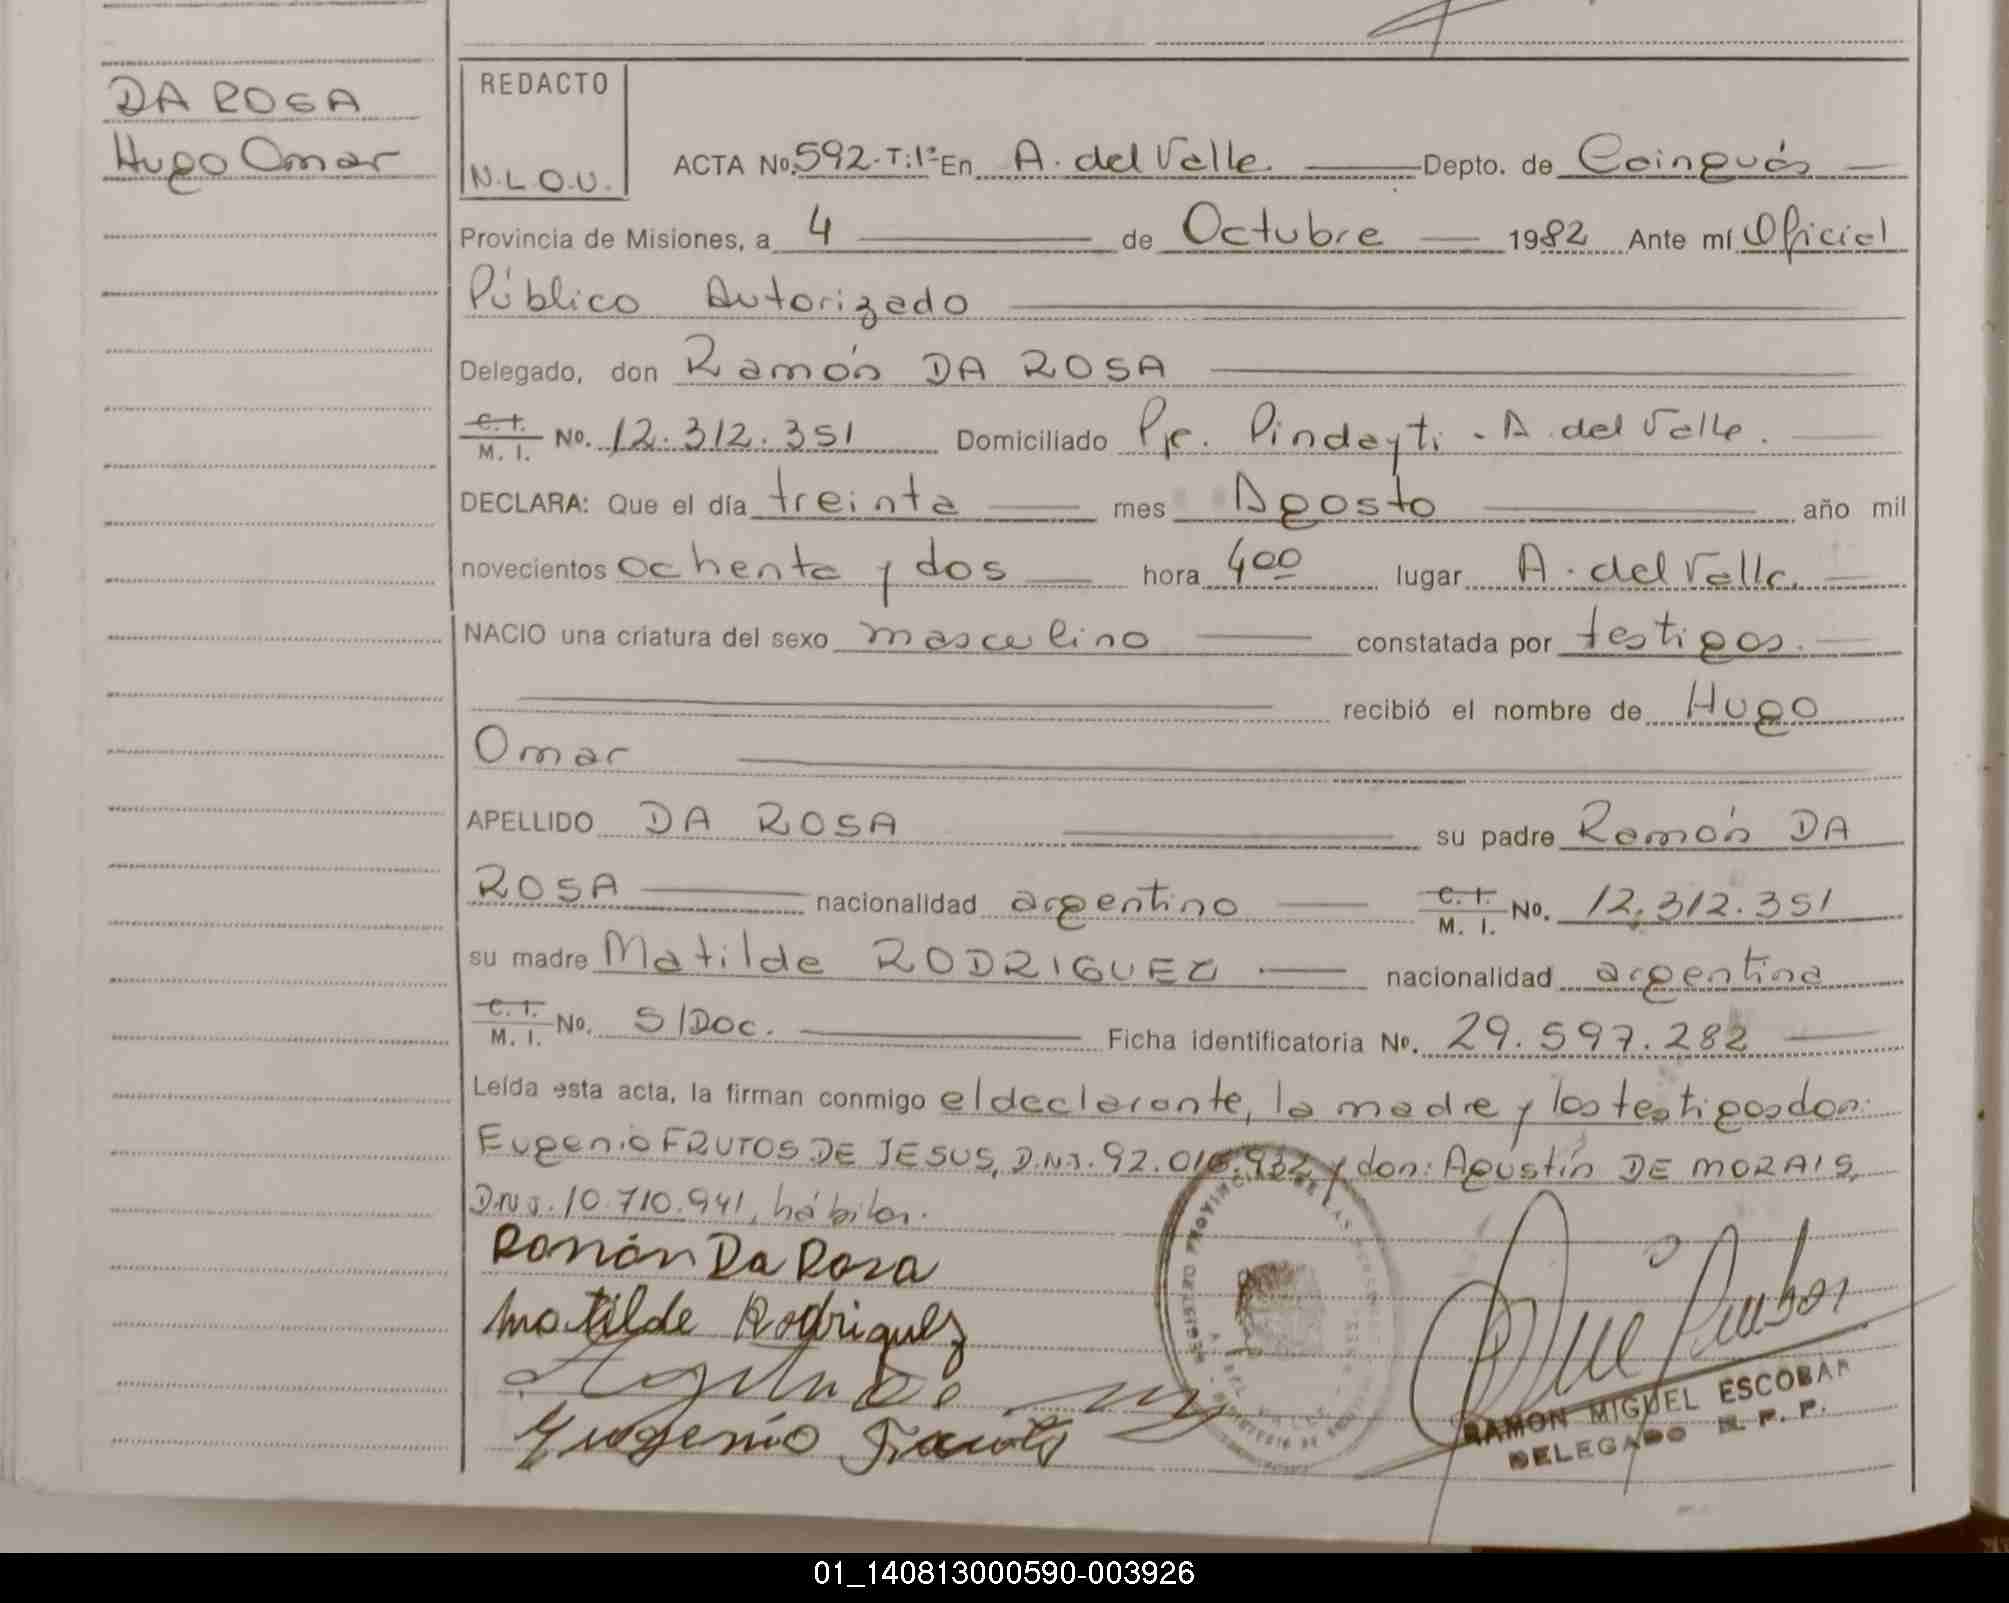 DA ROSA
Hugo Omar
REDACTO
N.L.O.U.
ACTA No. 592-T:1º En A. del Valle Depto. de Cainguás
Provincia de Misiones, a 4 de Octubre 1982 Ante mí Oficial
Público Autorizado
Delegado, don Ramón DA ROSA
C. I.
M. I. No. 12.312.351 Domiciliado Pje. Pindayti - A. del Valle.
DECLARA: Que el día treinta mes Agosto año mil
novecientos ochenta y dos hora 4 00 lugar A. del Valle.
NACIO una criatura del sexo masculino constatada por testigos.
recibió el nombre de Hugo
Omar
APELLIDO DA ROSA su padre Ramón DA
ROSA nacionalidad argentino C. I.
M. I. No. 12.312.351
su madre Matilde RODRIGUEZ nacionalidad argentina
C. I.
M. I. No. S/Doc. Ficha identificatoria No. 29.597.282
Leída esta acta, la firman conmigo el declarante, la madre y los testigos don:
Eugenio FRUTOS DE JESUS, D.N.I. 92.016.932 y don: Agustín DE MORAIS,
D.N.I. 10.710.941, hábiles.
Ramón Da Rosa
Matilde Rodriguez
Eugenio
RAMON MIGUEL ESCOBAR
DELEGADO R. P. P.
01_140813000590-003926